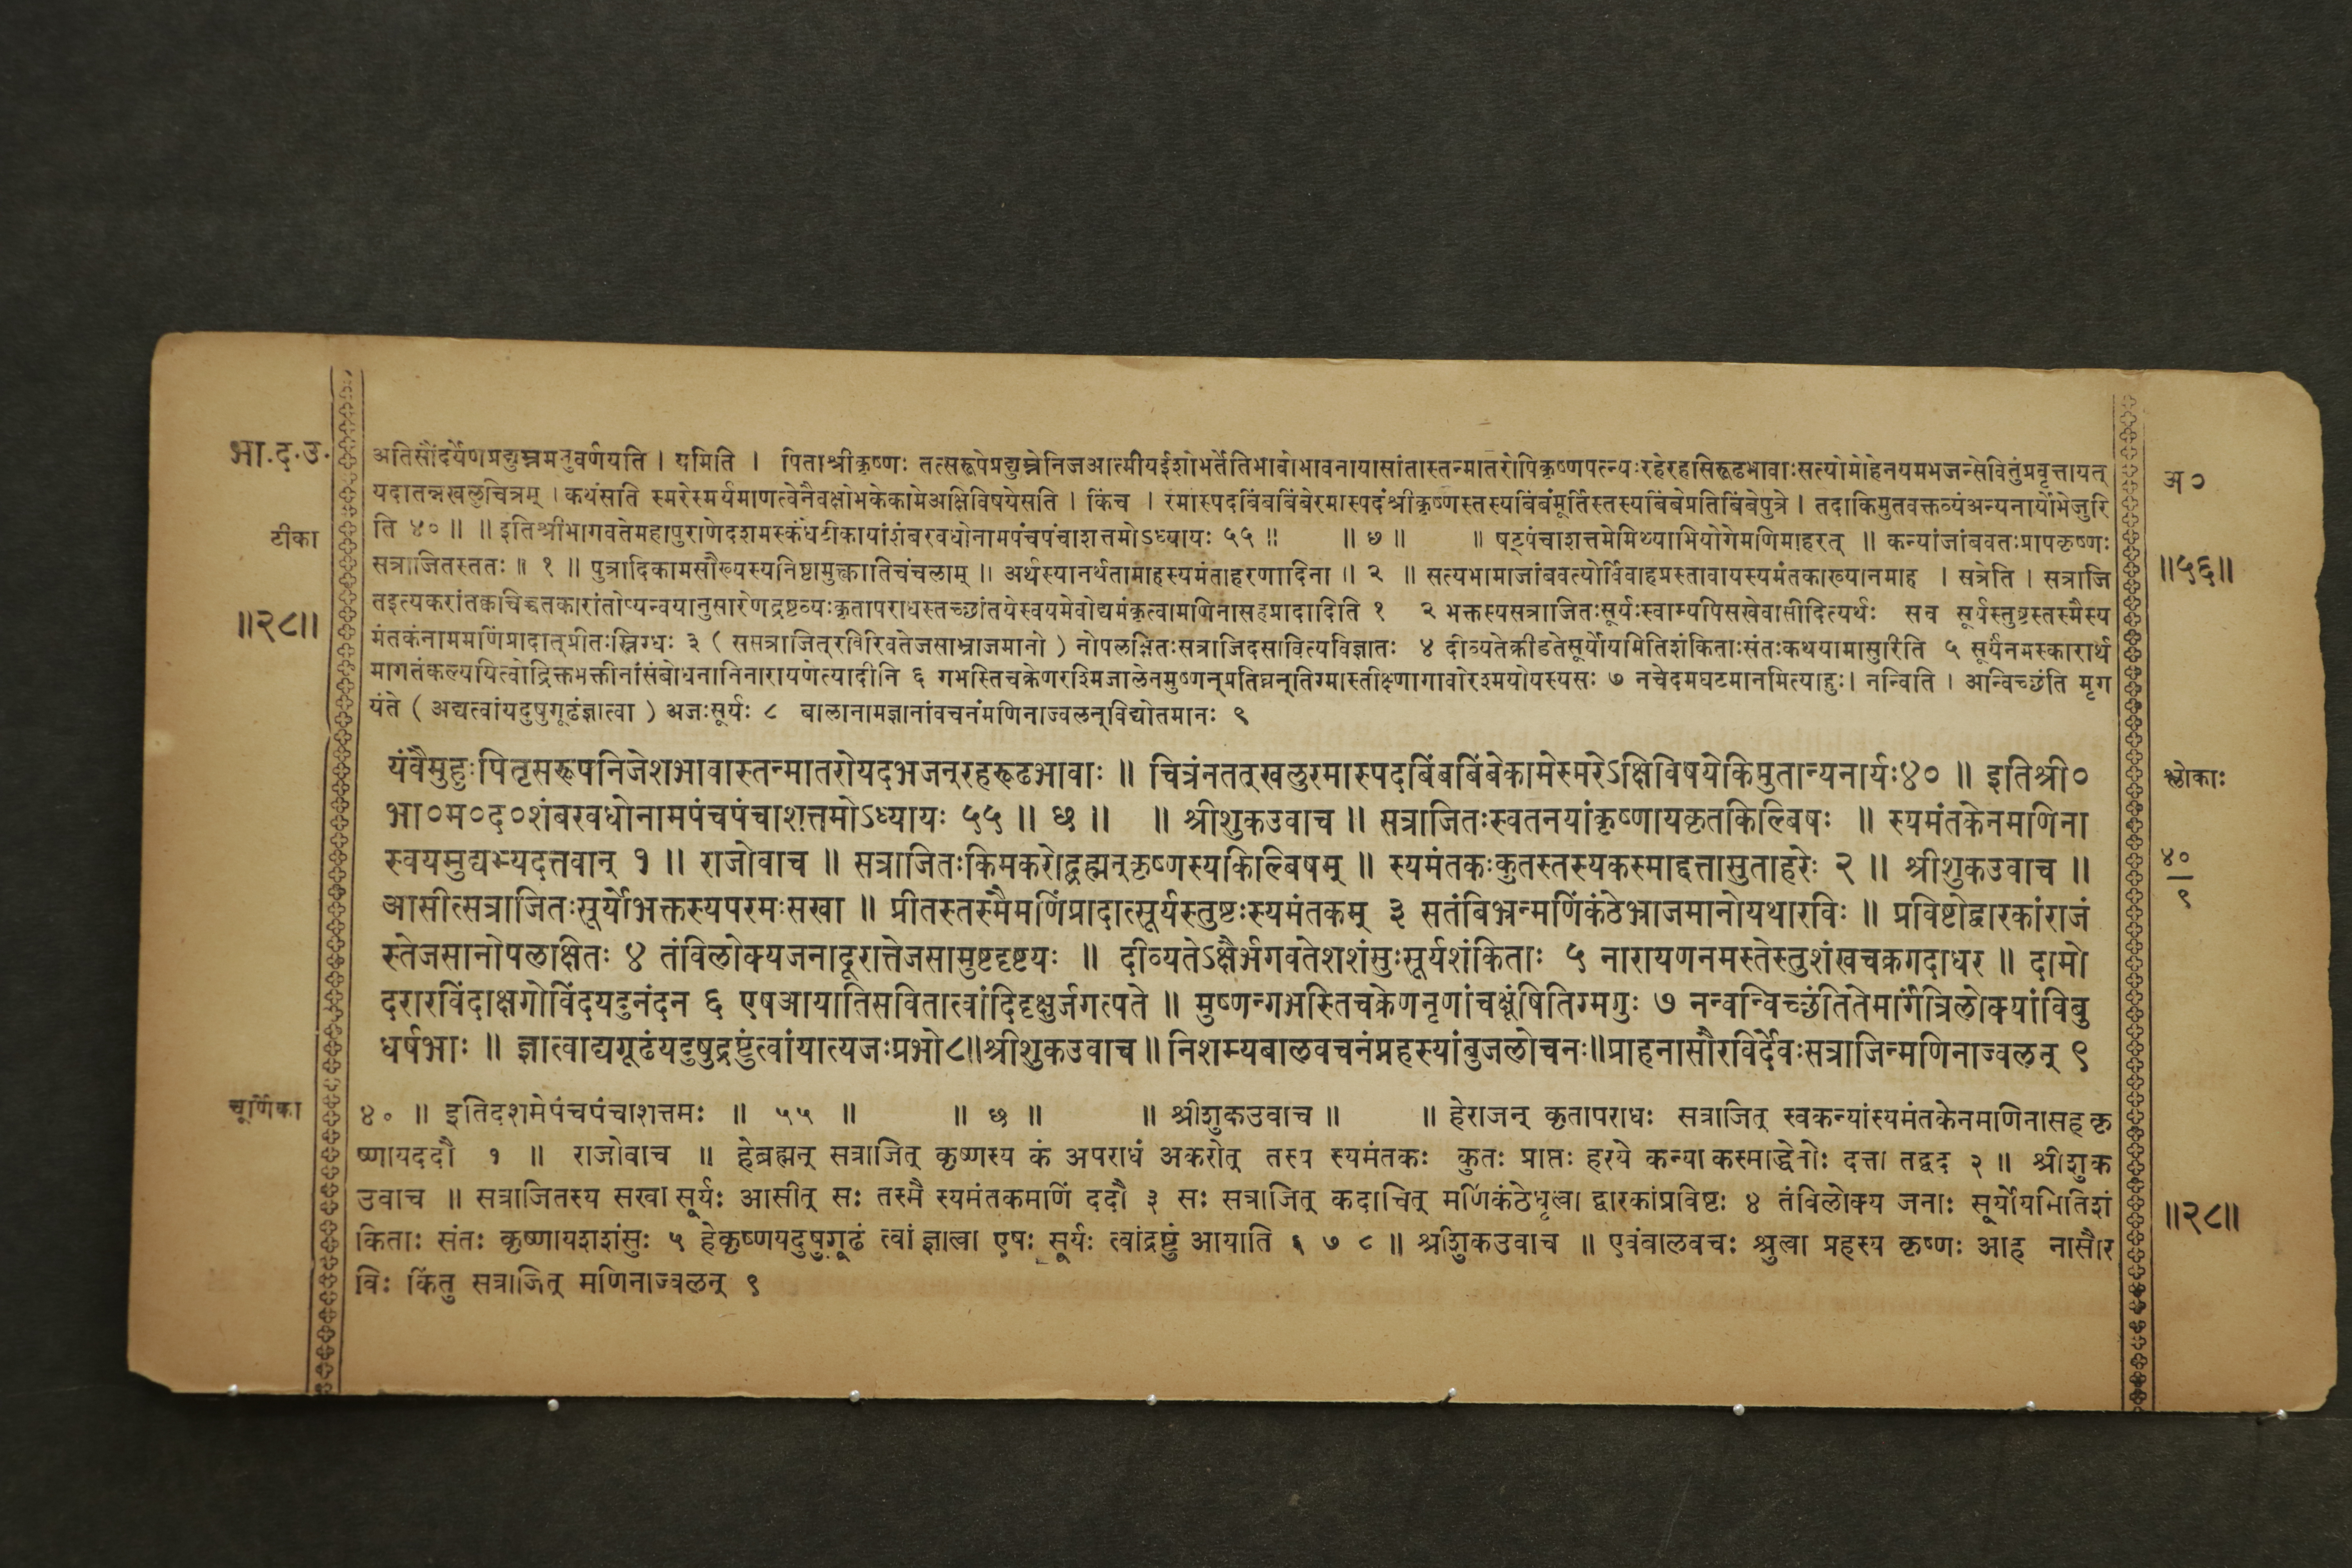 भा.द.उ.
अतिसौंदर्येणप्रद्युम्नमनुवर्णयति । यमिति । पिताश्रीकृष्णः तत्सरूपेप्रद्युम्नेनिजआत्मीयईशोभर्तेतिभावोभावनायासांतास्तन्मातरोपिकृष्णपत्न्यःरहेरहसिरूढभावाःसत्योमोहेनयमभजन्सेवितुंप्रवृत्तायत्
यदातन्नखलुचित्रम् । कथंसाति स्मरेस्मर्यमाणत्वेनैवक्षोभकेकामेअक्षिविषयेसति । किंच । रमास्पदबिंबबिंबेरमास्पदंश्रीकृष्णस्तस्यबिंबंमूर्तिस्तस्यबिंबेप्रतिबिंबेपुत्रे । तदाकिमुतवक्तव्यंअन्यनार्योभेजुरि
ति ४० ॥ ॥ इतिश्रीभागवतेमहापुराणेदशमस्कंधेटीकायांशंबरवधोनामपंचपंचाशत्तमोऽध्यायः ५५ ॥ ॥ छ ॥ ॥ षट्पंचाशत्तमेमिथ्याभियोगेमणिमाहरत् ॥ कन्यांजांबवतःप्रापकृष्णः
सत्राजितस्ततः ॥ १ ॥ पुत्रादिकामसौख्यस्यनिष्ठामुक्त्वातिचंचलाम् ॥ अर्थस्यानर्थतामाहस्यमंताहरणादिना ॥ २ ॥ सत्यभामाजांबवत्योर्विवाहप्रस्तावायस्यमंतकाख्यानमाह । सत्रेति । सत्राजि
तइत्यकरांतकाचिच्चतकारांतोप्यन्वयानुसारेणद्रष्टव्यःकृतापराधस्तच्छांतयेस्वयमेवोद्यमंकृत्वामणिनासहप्रादादिति १ २ भक्तस्यसत्राजितःसूर्यःस्वाम्यपिसखेवासीदित्यर्थः सच सूर्यस्तुष्टस्तस्मैस्य
मंतकंनाममणिंप्रादात्प्रीतःस्निग्धः ३ ( ससत्राजित्रविरिवतेजसाभ्राजमानो ) नोपलक्षितःसत्राजिदसावित्यविज्ञातः ४ दीव्यतेक्रीडतेसूर्योयमितिशंकिताःसंतःकथयामासुरिति ५ सूर्यंनमस्कारार्थ
मागतंकल्पयित्वोद्रिक्तभक्तीनांसंबोधनानिनारायणेत्यादीनि ६ गभस्तिचक्रेणरश्मिजालेनमुष्णन्प्रतिघ्नन्तिग्मास्तीक्ष्णागावोरश्मयोयस्यसः ७ नचेदमघटमानमित्याहुः। नन्विति । अन्विच्छंति मृग
यंते ( अद्यत्वांयदुषुगूढंज्ञात्वा ) अजःसूर्यः ८ बालानामज्ञानांवचनंमणिनाज्वलन्विद्योतमानः ९
टीका
॥२८॥
अ०
॥५६॥
यंवैमुहुःपितृसरूपनिजेशभावास्तन्मातरोयदभजन्रहरूढभावाः ॥ चित्रंनतत्खलुरमास्पदबिंबबिंबेकामेस्मरेऽक्षिविषयेकिमुतान्यनार्यः४० ॥ इतिश्री०
भा०म०द०शंबरवधोनामपंचपंचाशत्तमोऽध्यायः ५५ ॥ छ ॥ ॥ श्रीशुकउवाच ॥ सत्राजितःस्वतनयांकृष्णायकृतकिल्बिषः ॥ स्यमंतकेनमणिना
स्वयमुद्यम्यदत्तवान् १ ॥ राजोवाच ॥ सत्राजितःकिमकरोद्ब्रह्मन्कृष्णस्यकिल्बिषम् ॥ स्यमंतकःकुतस्तस्यकस्माद्दत्तासुताहरेः २ ॥ श्रीशुकउवाच ॥
आसीत्सत्राजितःसूर्योभक्तस्यपरमःसखा ॥ प्रीतस्तस्मैमणिंप्रादात्सूर्यस्तुष्टःस्यमंतकम् ३ सतंबिभ्रन्मणिंकंठेभ्राजमानोयथारविः ॥ प्रविष्टोद्वारकांराजं
स्तेजसानोपलाक्षितः ४ तंविलोक्यजनादूरात्तेजसामुष्टदृष्टयः ॥ दीव्यतेऽक्षैर्भगवतेशशंसुःसूर्यशंकिताः ५ नारायणनमस्तेस्तुशंखचक्रगदाधर ॥ दामो
दरारविंदाक्षगोविंदयदुनंदन ६ एषआयातिसवितात्वांदिदृक्षुर्जगत्पते ॥ मुष्णन्गभस्तिचक्रेणनृणांचक्षूंषितिग्मगुः ७ नन्वन्विच्छंतितेमार्गंत्रिलोक्यांविबु
धर्षभाः ॥ ज्ञात्वाद्यगूढंयदुषुद्रष्टुंत्वांयात्यजःप्रभो८॥श्रीशुकउवाच॥निशम्यबालवचनंप्रहस्यांबुजलोचनः॥प्राहनासौरविर्देवःसत्राजिन्मणिनाज्वलन् ९
श्लोकाः
४०
९
चूर्णिका
४० ॥ इतिदशमेपंचपंचाशत्तमः ॥ ५५ ॥ ॥ छ ॥ ॥ श्रीशुकउवाच ॥ ॥ हेराजन् कृतापराधः सत्राजित् स्वकन्यांस्यमंतकेनमणिनासह कृ
ष्णायददौ १ ॥ राजोवाच ॥ हेब्रह्मन् सत्राजित् कृष्णस्य कं अपराधं अकरोत् तस्य स्यमंतकः कुतः प्राप्तः हरये कन्या कस्माद्धेतोः दत्ता तद्वद २ ॥ श्रीशुक
उवाच ॥ सत्राजितस्य सखा सूर्यः आसीत् सः तस्मै स्यमंतकमणिं ददौ ३ सः सत्राजित् कदाचित् मणिंकंठेधृत्वा द्वारकांप्रविष्टः ४ तंविलोक्य जनाः सूर्योयमितिशं
किताः संतः कृष्णायशशंसुः ५ हेकृष्णयदुषुगूढं त्वां ज्ञात्वा एषः सूर्यः त्वांद्रष्टुं आयाति ६ ७ ८ ॥ श्रीशुकउवाच ॥ एवंबालवचः श्रुत्वा प्रहस्य कृष्णः आह नासौर
विः किंतु सत्राजित् मणिनाज्वलन् ९
॥२८॥